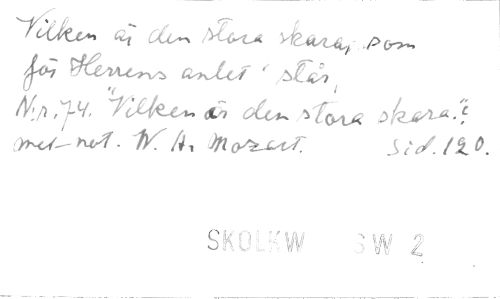 Vilken är den stora skara, som
för Herrens anlet' står,
N:r. 74. "Vilken är den stora skara."
met-not. W. A. Mozart. Sid. 120.
SKOLKW SW 2